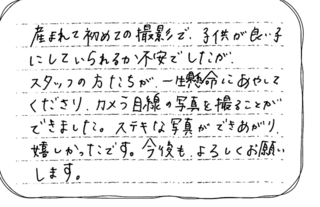 産まれて初めての撮影で、子供が良い子
にしていられるか不安でしたが、
スタッフの方たちが、一生懸命にあやして
くださり、カメラ目線の写真を撮ることが
できました。ステキな写真ができあがり、
嬉しかったです。今後も、よろしくお願い
します。